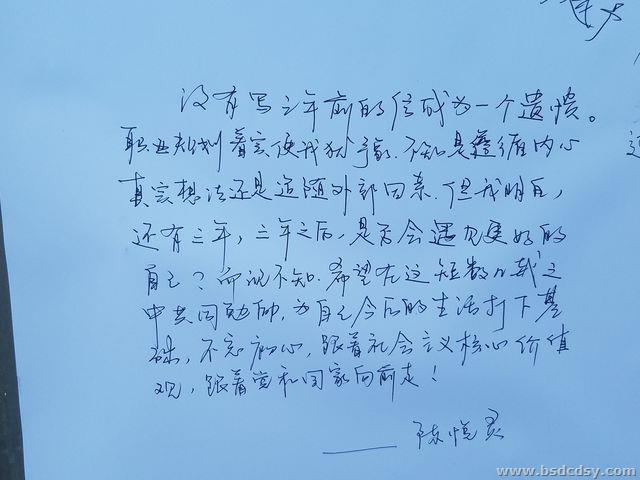 没有写三年前的信成为一个遗憾。
职业规划着实使我犹豫.不知是遵循内心
真实想法还是追随外部因素.但我明白,
还有三年,三年之后,是否会遇见更好的
自己?尚说不知.希望在这短数载之
中共同勉励,为自己今后的生活打下基
础,不忘初心,跟着社会主义核心价值
观,跟着党和国家向前走!
——陈悦灵
www.bsdcdsy.com